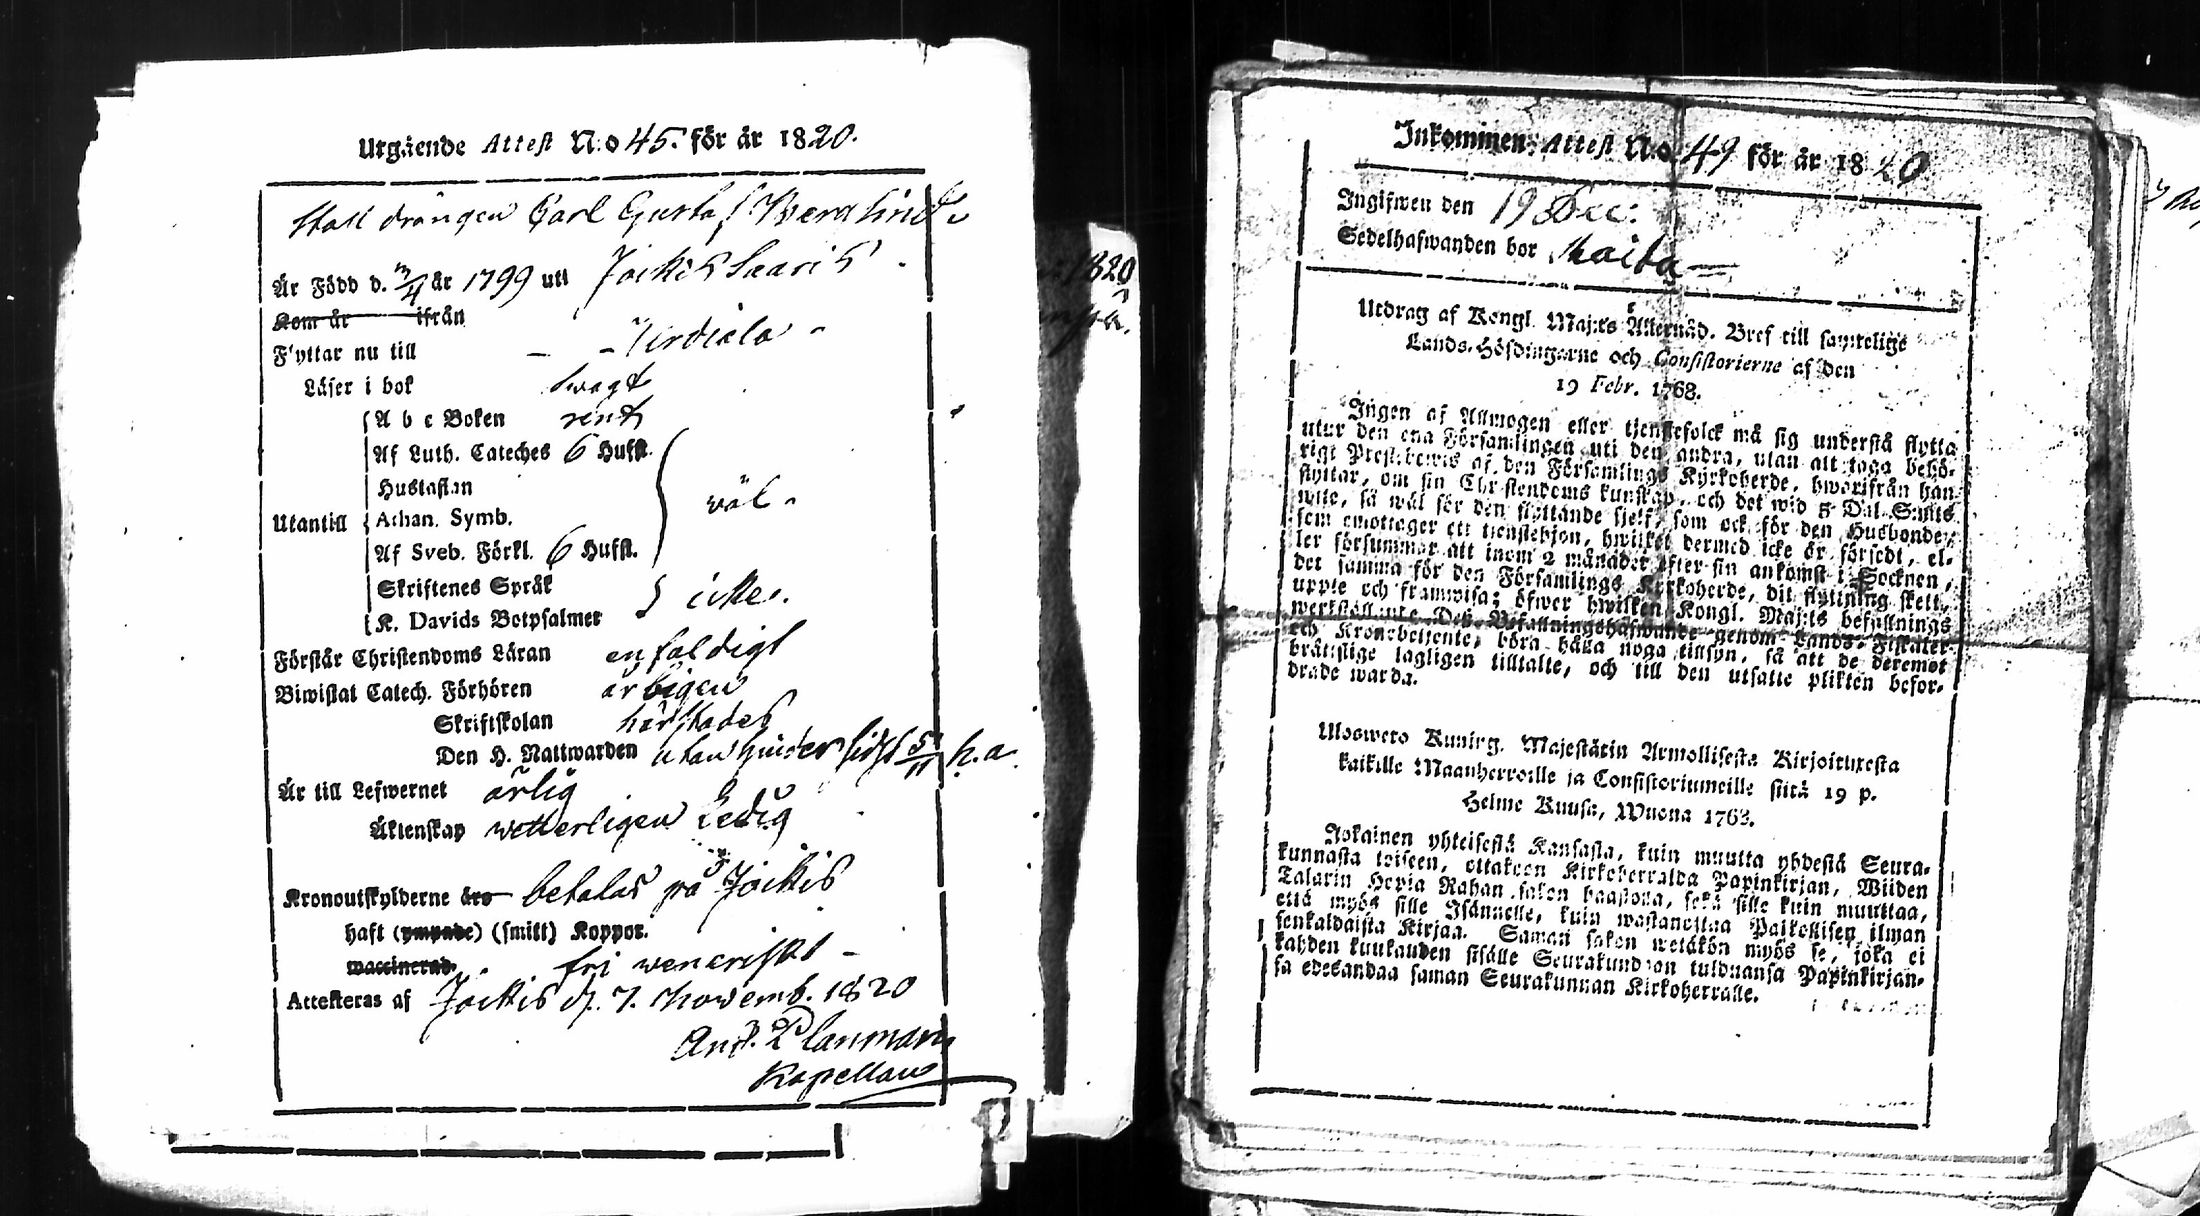 Utgående Attest N:o 45. för år 1820.
Stall drängen Carl Gustaf Berglind
Är Född d. /4 år 1799 uti Jockis
Kom år ifrån
Flyttar nu till Urdiala
Läser i bok swagt
A b c Boken rent
Af Luth. Cateches 6 Hufst.
Hustaflan
Utantill Athan. Symb. wäl
Af Sveb. Förkl. 6 Hufst.
Skriftenes Språk
K. Davids Botpsalmer icke.
Förstår Christendoms Läran enfaldigt
Biwistat Catech. Förhören ärligen
Skriftskolan härstädes
Den H. Nattwarden utan hinder sidst 5/11 h. a.
Är till Lefwernet ärlig
Äktenskap wetterligen Ledig
Kronoutskylderne äro betalas på Jockis
haft (ympade) (smitt) Koppor.
waccinerad. fri weneriskt
Attesteras af Jockis d. 7. Novemb. 1820
And. Planman
Kapellan
1820
Inkommen: Attest N:o 49 för år 1820
Ingifwen den 19 Dec:
Sedelhafwanden bor
Utdrag af Kongl. Maj:ts Allernåd. Bref till samtelige
Lands-Höfdingarne och Consistorierne af den
19 Febr. 1768.
Ingen af Allmogen eller tjenstefolck må sig understå flytta
utur den ena Församlingen uti den andra, utan att taga behö-
rigt Prestbewis af den Församlings Kyrkoherde, hwarifrån han
flyttar, om sin Christendoms kunskap, och det wid 5 Dal. S:mts
wite, så wäl för den flyttande sjelf, som ock för den Husbonde,
som emottager ett tjenstehjon, hwilket dermed icke är försedt, el-
ler försummar att inom 2 månader efter sin ankomst i Socknen,
det samma för den Församlings Kyrkoherde, dit flyttning skett,
uppte och framwisa; öfwer hwilken Kongl. Maj:ts befallnings
werkställande Deß Befallningshafwande genom Lands-Fiskaler
och Kronobetjente, böra hålla noga tillsyn, så att de deremot
bråttslige lagligen tilltalte, och till den utsatte plikten befor-
drade warda.
Uloswero Kuning. Majestätin Armollisesta Kirjoituxesta
kaikille Maanherroille ja Consistoriumeille siitä 19 p.
Helme Kuusa, Wuona 1768.
Jokainen yhteisestä Kansasta, kuin muutta yhdestä Seura-
kunnasta toiseen, ottakoon Kirkoherralda Papinkirjan, Wiiden
Talarin Hopia Rahan sakon haastolla, sekä sille kuin muuttaa,
että myös sille Isännelle, kuin wastanottaa Palkollisen ilman
senkaldaista Kirjaa. Saman sakon wetäkön myös se, joka ei
kahden kuukauden sisälle Seurakundaan tulduansa Papinkirjan-
sa edesandaa saman Seurakunnan Kirkoherralle.